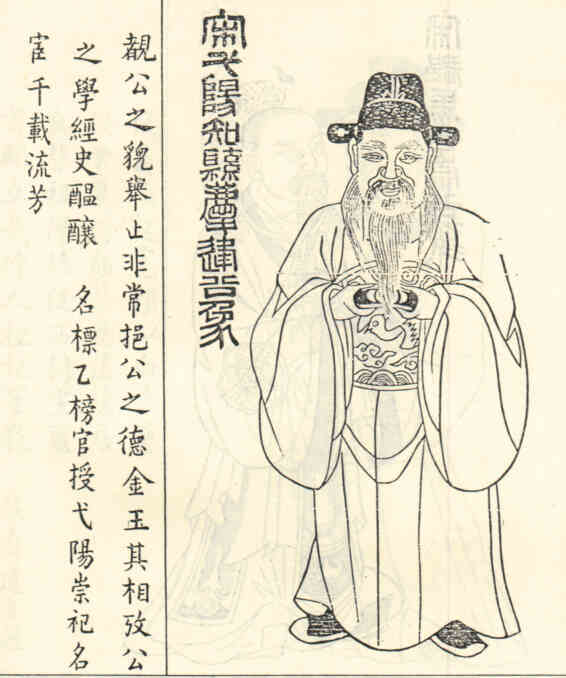 宋弋陽知縣肇建公像
覩公之貌舉止非常挹公之德金玉其相攷公
之學經史醞釀 名標乙榜官授弋陽崇祀名
宦千載流芳